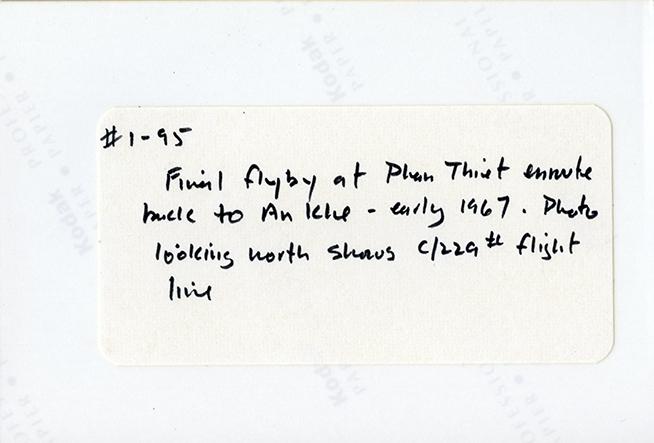 #1-95
Final flyby at Phan Thiet enroute
back to An Khe - early 1967. Photo
looking north shows C/229th flight
line
Kodak
Kodak
Kodak
PAPIER
PAPIER